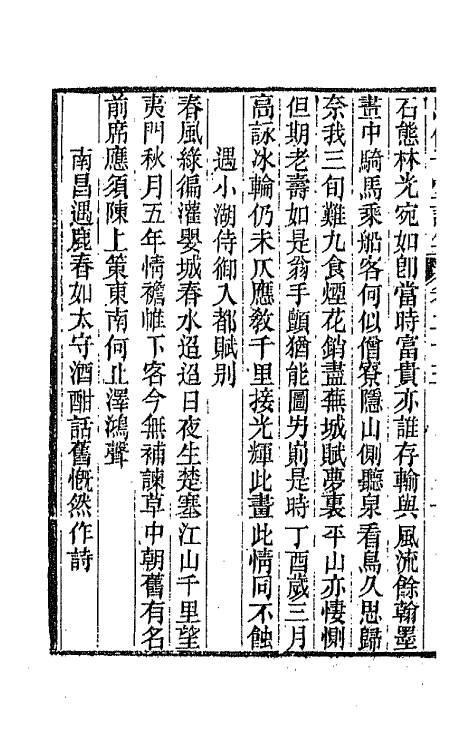 石態林光宛如卽當時富貴亦誰存輸與風流餘翰墨
畫中騎馬乘船客何似僧寮隱山側聽泉看鳥久思歸
奈我三旬難九食煙花銷盡蕪城賦夢裏平山亦悽惻
但期老壽如是翁手顫猶能圖男前是時丁酉歲三月
高詠冰輪仍未仄應敎千里接光輝此畫此情同不蝕
遇小湖侍御入都賦别
春風綠徧灌嬰城春水迢迢日夜生楚塞江山千里望
夷門秋月五年情襜帷下客今無補諫草中朝舊有名
前席應須陳上策東南何止澤鴻聲
南昌遇鹿春如太守酒酣話舊慨然作詩